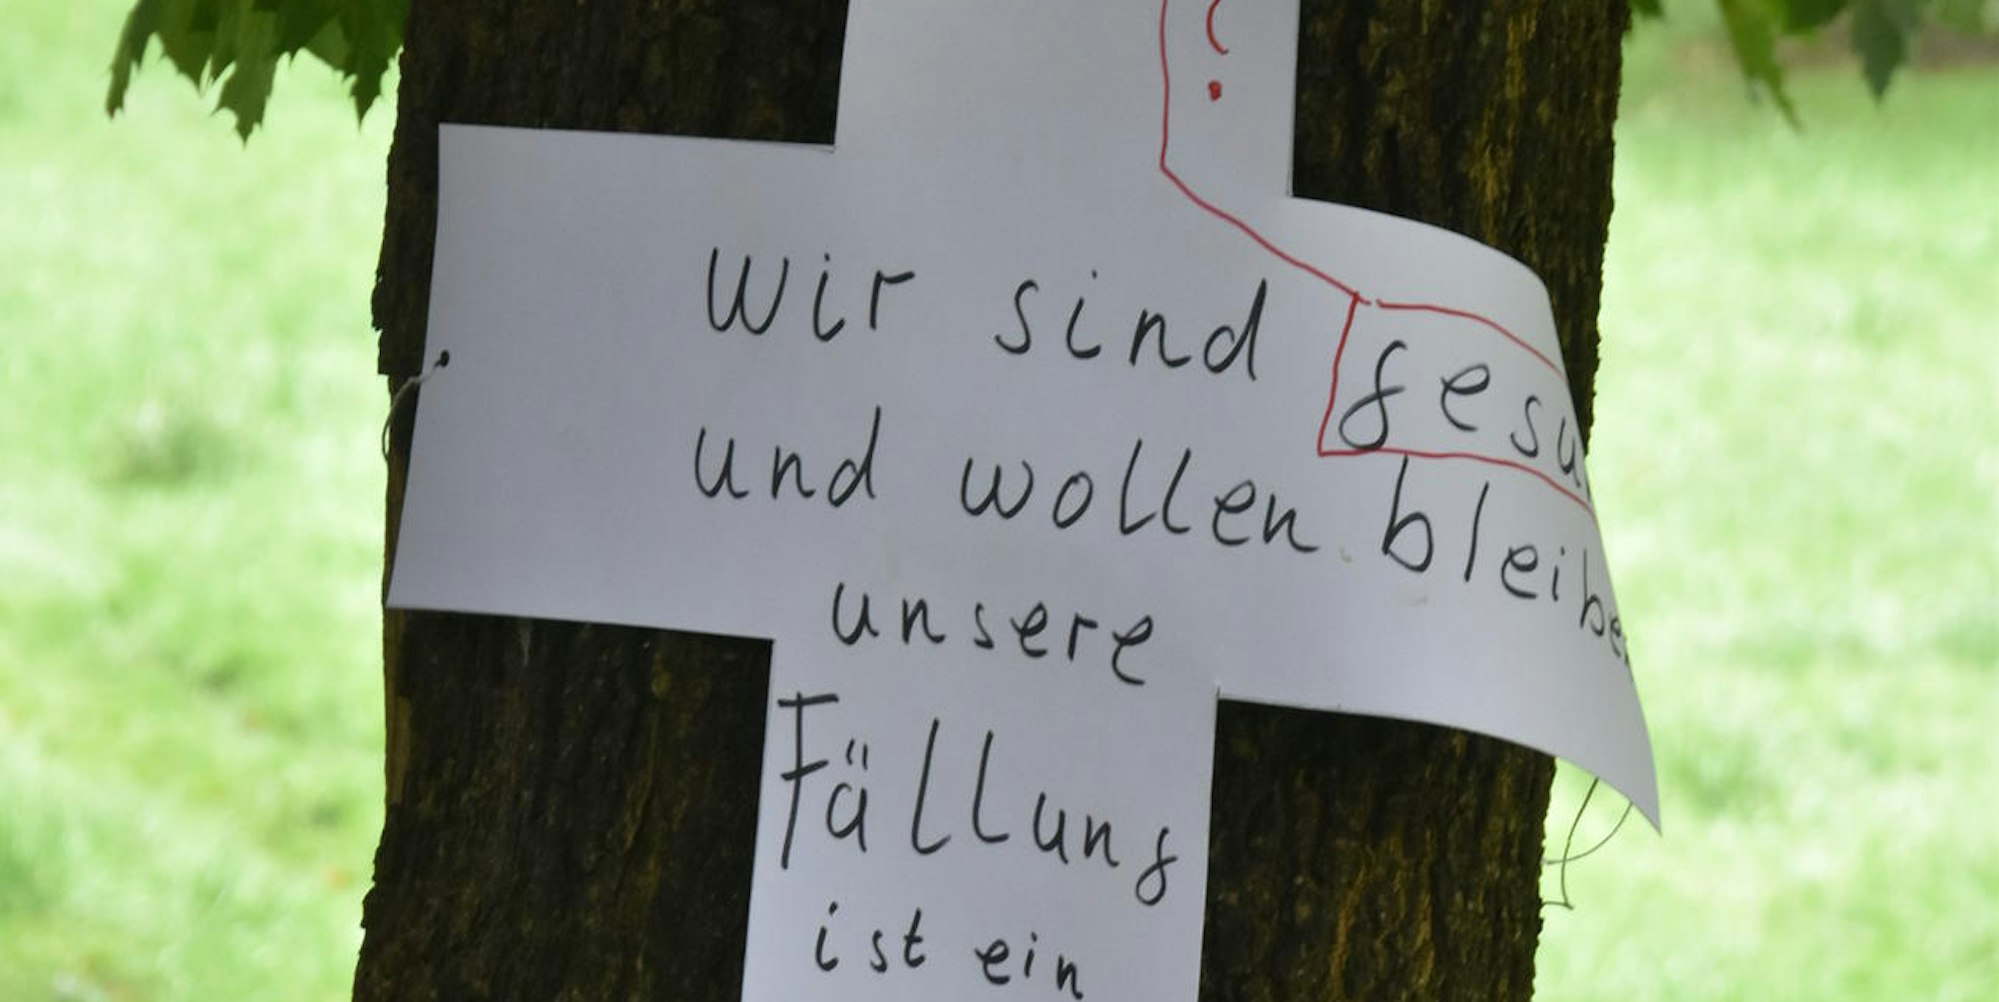 ?
Wir sind gesu
und wollen bleibe
unsere
Fällung
ist ein